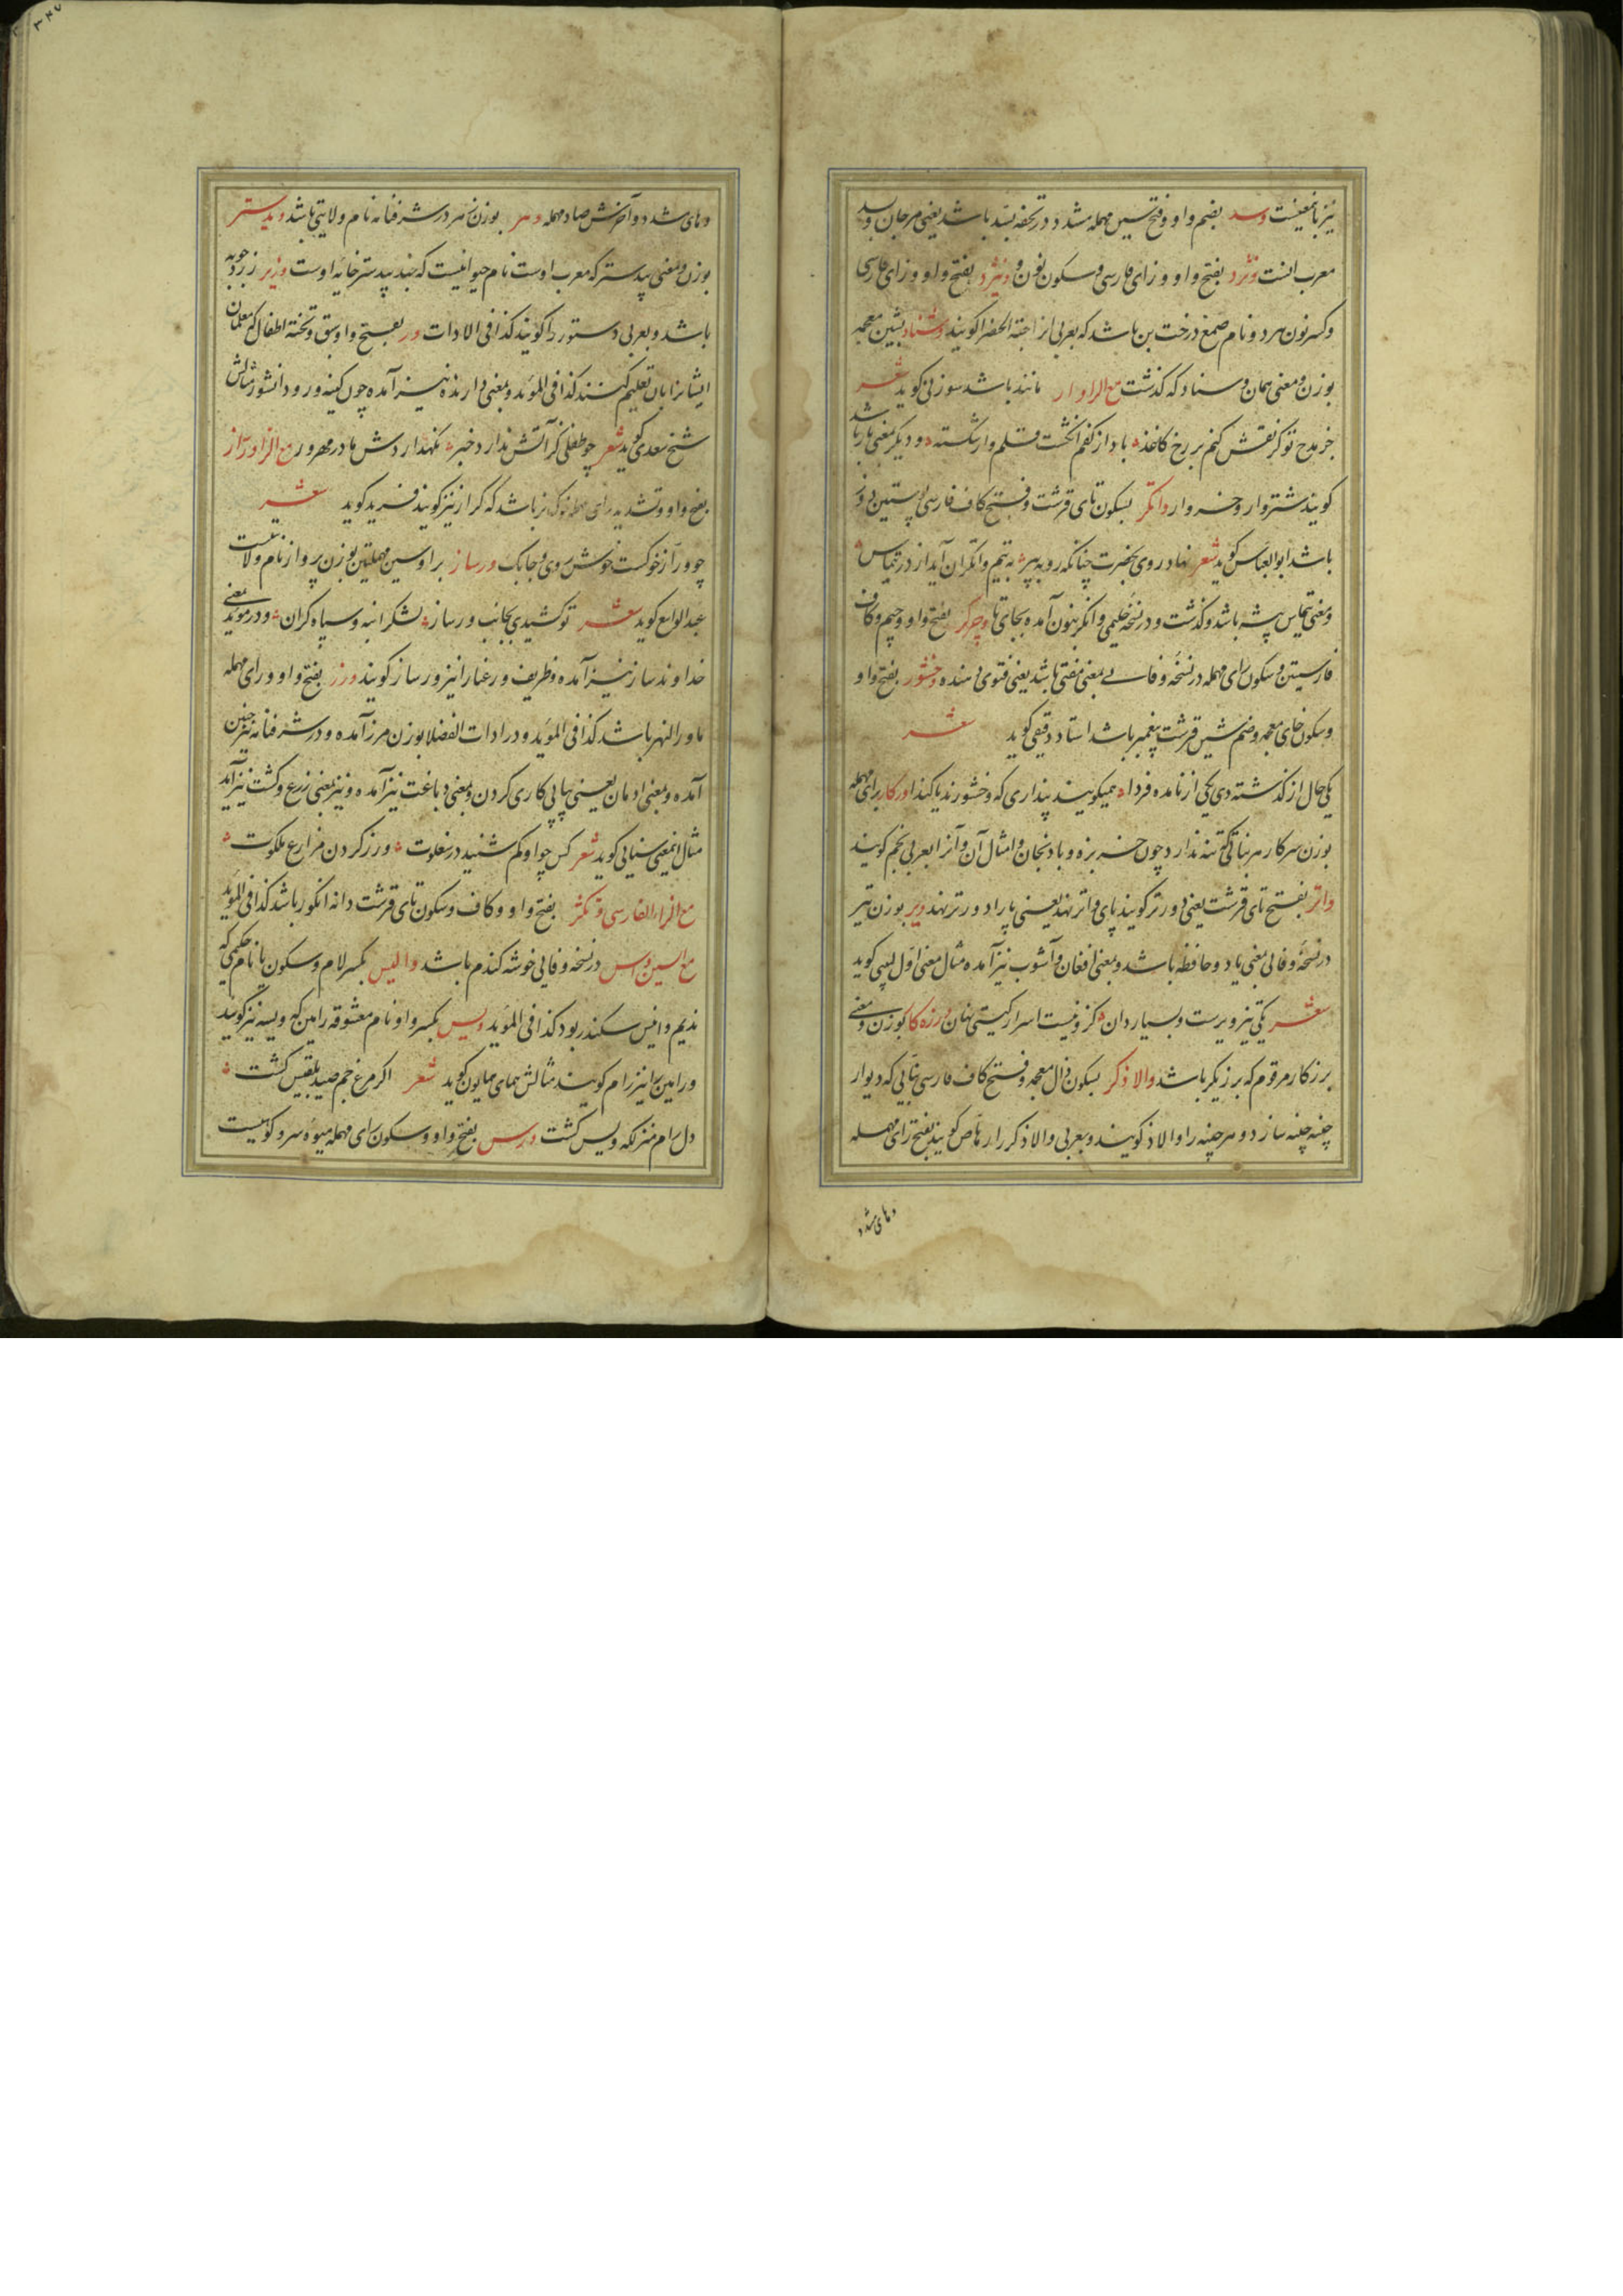 نیز باینمعنیست وسد بضم واو و فتح سین مهمله مشدد در تحفه بسد باشد یعنی مرجان و بسد
معرب انست وژند بفتح واو و زای فارسی و سکون نون و ونژد بفتح واو و زای فارسی
و کسر نون مرد و نام صمغ درخت بن باشد که بعربی انرا حبّة الخضرا کویند وشناد بشین معجمه
بوزن و معنی همان وسناد که کذشت مع الرا وار مانند باشد سوزنی کوید شعر
جز مدح تو کر نقش کنم بر رخ کاغذ باد از کفم انکشت و قلم وار شکسته و دیکر بمعنی بار باشد
کویند شتروار و خروار واتکر بسکون تای قرشت و فتح کاف فارسی پوستین دوز
باشد ابوالعباس کوید شعر نهاد روی بحضرت چنانکه روبه پیر به تیم واتکران آید از در تیماس
و معنی تیماس پیشه باشد و کذشت و در نسخه حلیمی وانکر بنون آمده بجای تا وچرکر بفتح واو و جیم و کاف
فارسیتین و سکون رای مهمله در نسخه وفایی بمعنی مفتی باشد یعنی فتوی دهنده وخشور بفتح واو
و سکون خای معجمه و ضم شین قرشت پیغمبر باشد استاد دقیقی کوید شعر
یکی حال از کذشته دی یکی از نامده فردا همیکویند پنداری که وخشورند یا کندا ورکار برای مهمله
بوزن سرکار هر نباتی که تنه ندارد چون خربزه و بادنجان و امثال آن و آنرا بعربی نجم کویند
واتر بفتح تای قرشت یعنی دورتر کویند پای واتر نهد یعنی پا را دورتر نهد ویر بوزن تیر
در نسخه وفایی بمعنی یاد و حافظه باشد و بمعنی افغان و آشوب نیز آمده مثال معنی اوّل لبیبی کوید
شعر یکی تیز ویرست و بسیار دان کزو نیست اسرار کیتی نهان ورزه کار بوزن و معنی
برزکار مرقوم که برزیکر باشد والاذکر بسکون ذال معجمه و فتح کاف فارسی بنّایی که دیوار
چینه چینه سازد و هر چینه را والاذ کویند و بعربی والاذکر را رهّاص کویند بفتح رای مهمله
و های مشدد
و های مشدد و آخرش صاد مهمله وهر بوزن نهر در شرفنامه نام ولایتی باشد ویدستر
بوزن و معنی بیدستر که معرب اوست نام حیوانیست که جند بیدستر خایه اوست وزیر زردچوبه
باشد و بعربی دستور را کویند کذا فی الادات ور بفتح واو سبق و تخته اطفال که معلمان
ایشانرا بان تعلیم کنند کذا فی المؤید و بمعنی دارنده نیز آمده چون کینه ور و دانشور مثالش
شیخ سعدی کوید شعر چو طفلی کز آتش ندارد خبر نکهداردش مادر مهرور مع الزا ورّاز
بفتح واو و تشدید رای مهمله خوک نر باشد که کراز نیز کویند فرید کوید شعر
چو ورّاز خوکست خوش روی و چابک ورساز برا و سین مهملتین بوزن پرواز نام ولایتست
عبدالواسع کوید شعر تو کشیدی بجانب ورساز لشکر انبه و سپاه کران و در مؤید بمعنی
خداوند ساز نیز آمده و ظریف و رعنا را نیز ورساز کویند ورز بفتح واو و رای مهمله
ماورالنهر باشد کذا فی المؤید و در ادات الفضلا بوزن مرز آمده و در شرفنامه نیز چنین
آمده و بمعنی ادمان یعنی پیاپی کاری کردن و بمعنی دباغت نیز آمده و نیز بمعنی زرع و کشت نیز آمد
مثال اینمعنی سنایی کوید شعر کس چو او کم شنید در خلوت ورز کردن مزارع ملکوت
مع الزا الفارسی وتکژ بفتح واو و کاف و سکون تای قرشت دانه انکور باشد کذا فی المؤید
مع السین وس در نسخه وفایی خوشه کندم باشد والیس بکسر لام و سکون یا نام حکیمی که
ندیم و انیس سکندر بود کذا فی المؤید ویس بکسر واو نام معشوقه رامین که ویسه نیز کویند
و رامین را نیز رام کویند مثالش همای همایون کوید شعر اکر مرغ جم صید بلقیس کشت
دل رام منزلکه ویس کشت ورس بفتح واو و سکون رای مهمله میوه سرو کوهیست